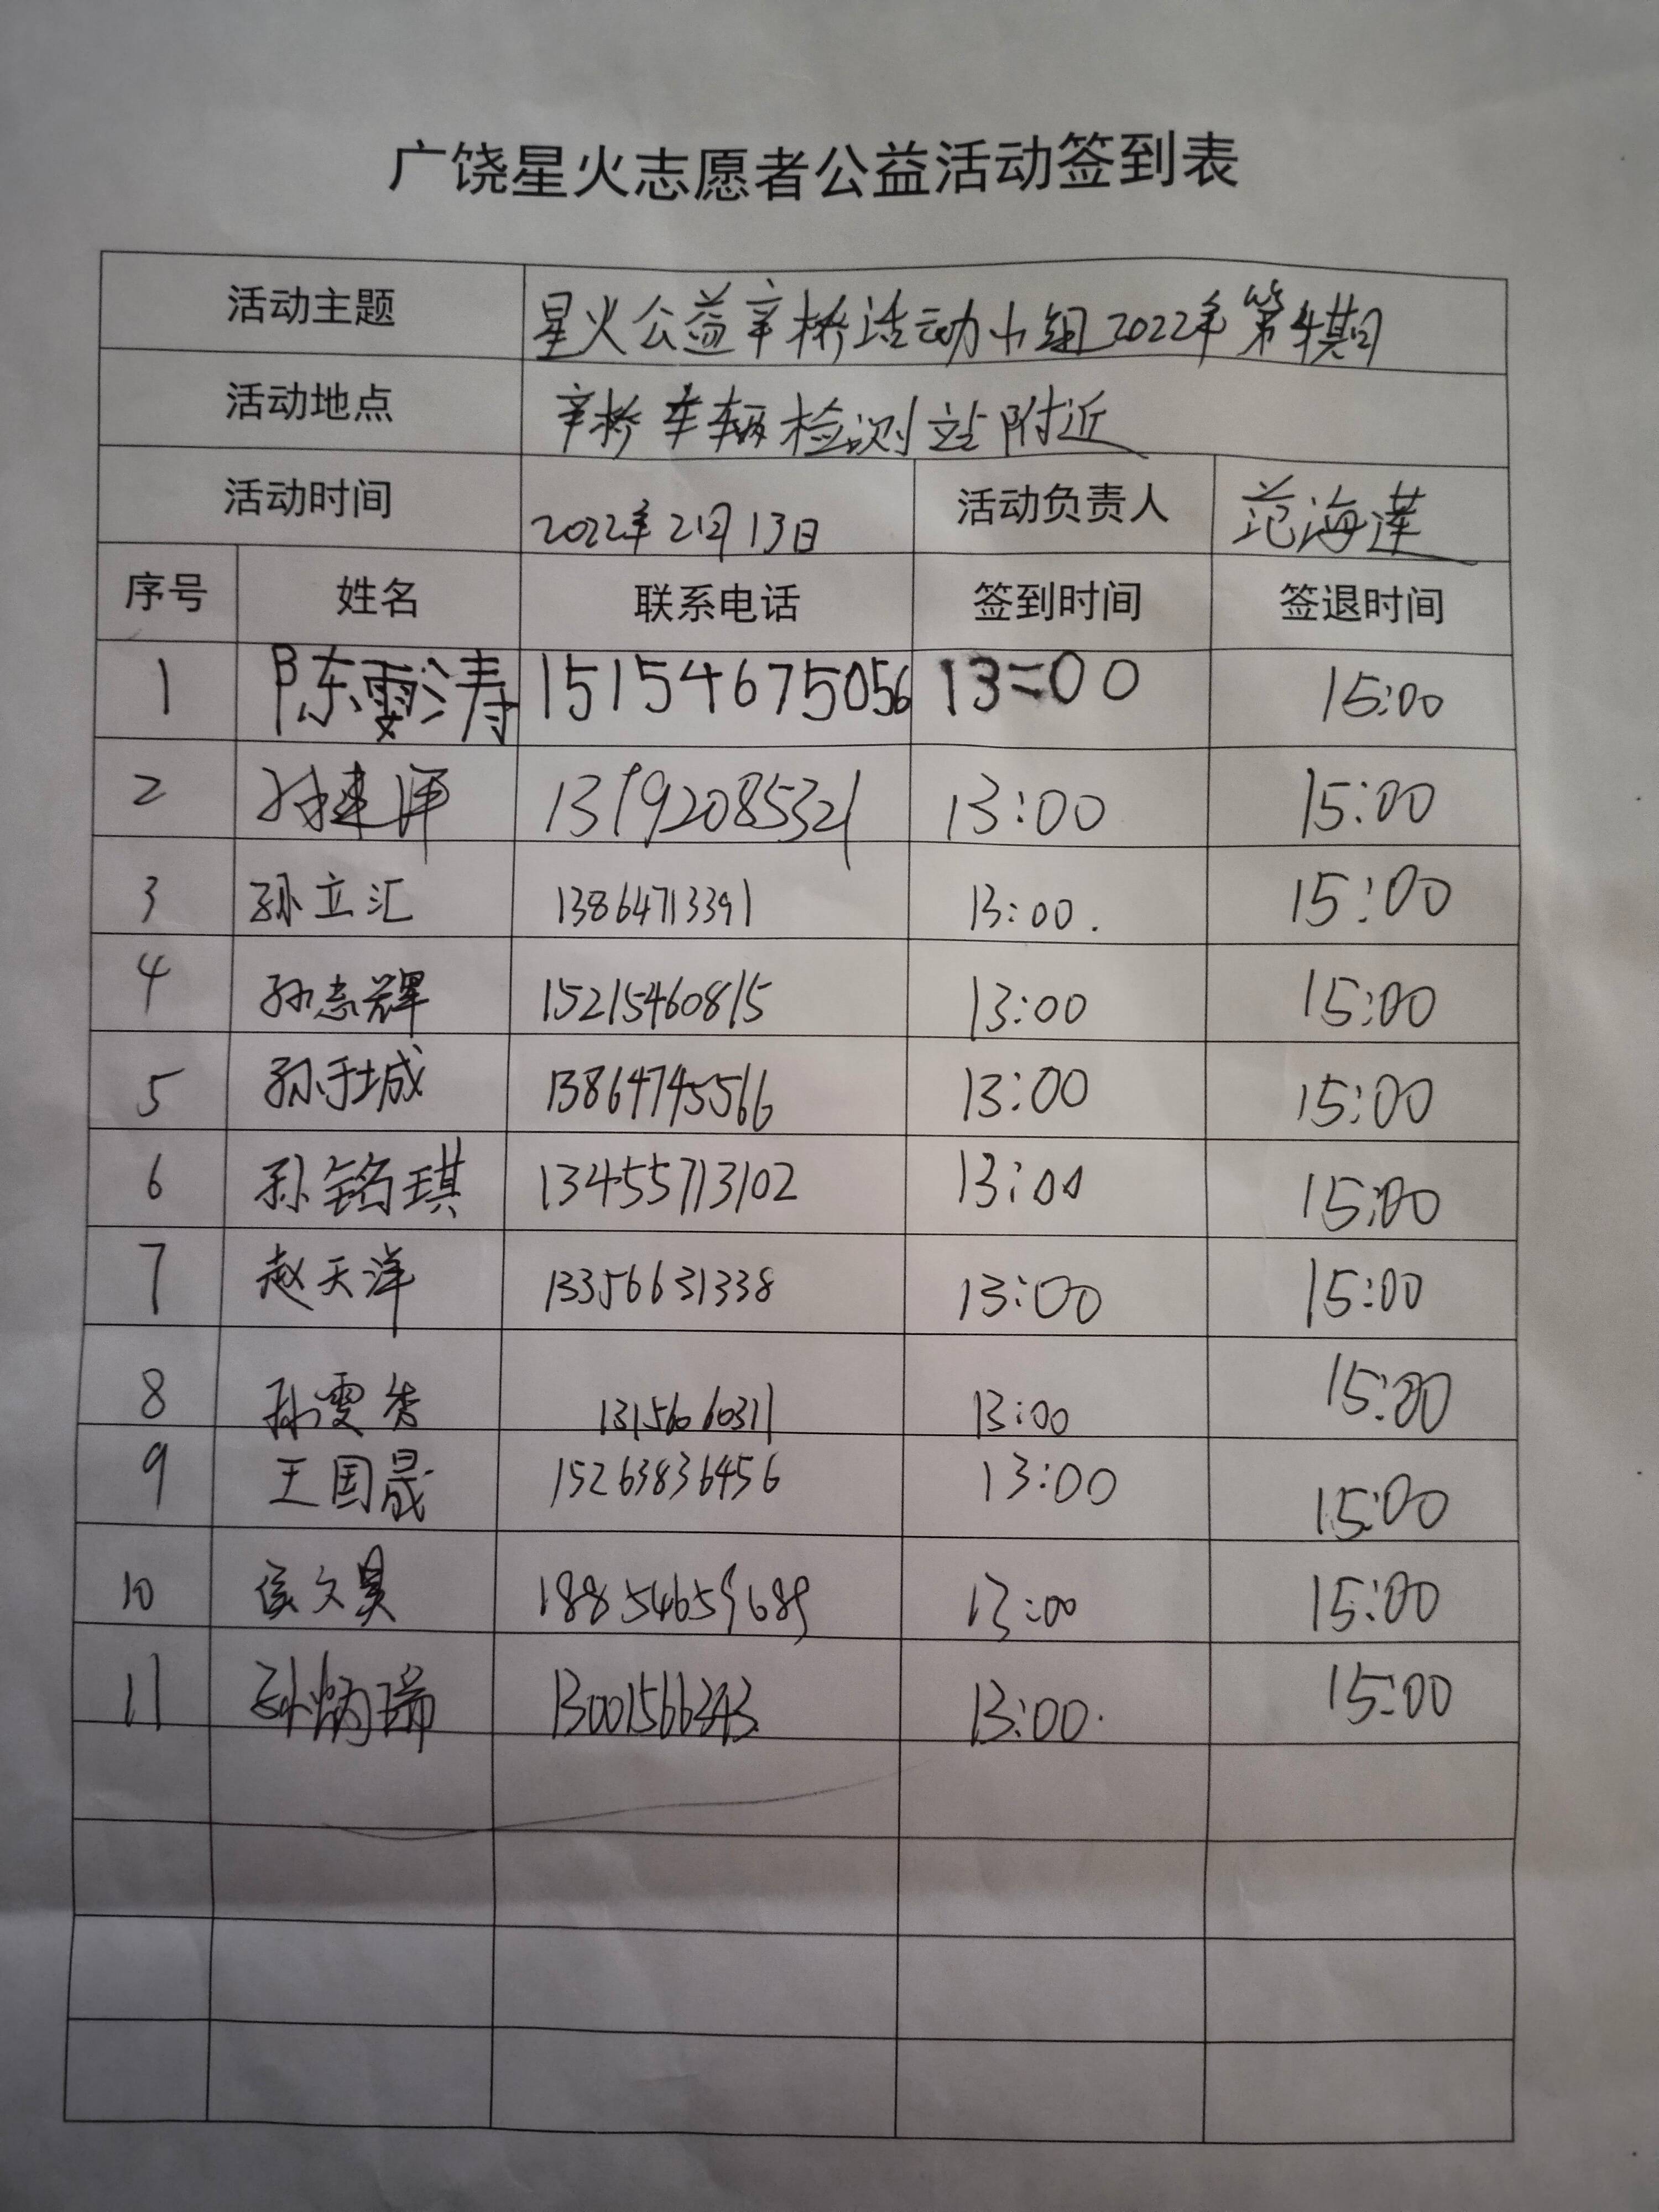 广饶星火志愿者公益活动签到表
活动主题 星火公益辛桥活动小组2022年第4期
活动地点 辛桥车辆检测站附近
活动时间 2022年2月13日 活动负责人 范海莲
序号 姓名 联系电话 签到时间 签退时间
1 陈雯涛 15154675056 13:00 15:00
2 孙建洋 13792085321 13:00 15:00
3 孙立汇 13864713391 13:00. 15:00
4 孙志辉 15215460815 13:00 15:00
5 孙于城 13864745566 13:00 15:00
6 孙铭琪 13455713102 13:00 15:00
7 赵天洋 13356631338 13:00 15:00
8 孙雯 13156060311 13:00 15:00
9 王国晟 15263836456 13:00 15:00
10 侯文昊 18854659689 13:00 15:00
11 孙炳瑞 13:00. 15:00